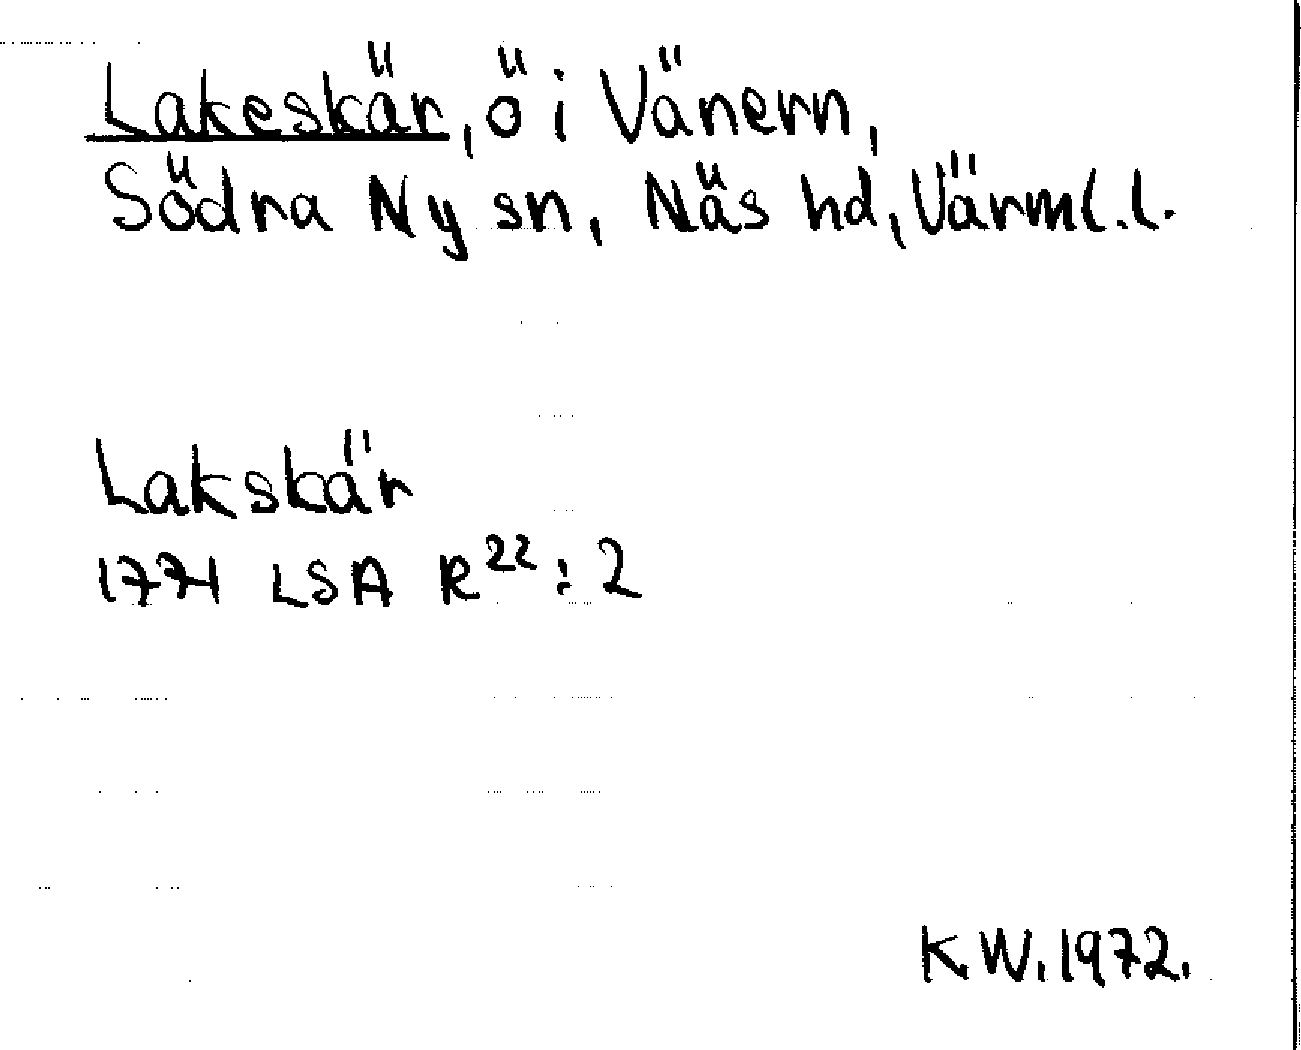 Lakeskär, ö i Vänern,
Södra Ny sn, Näs hd, Värml. l.
Lakskär
1771 LSA R²²: 2
K.W. 1972.